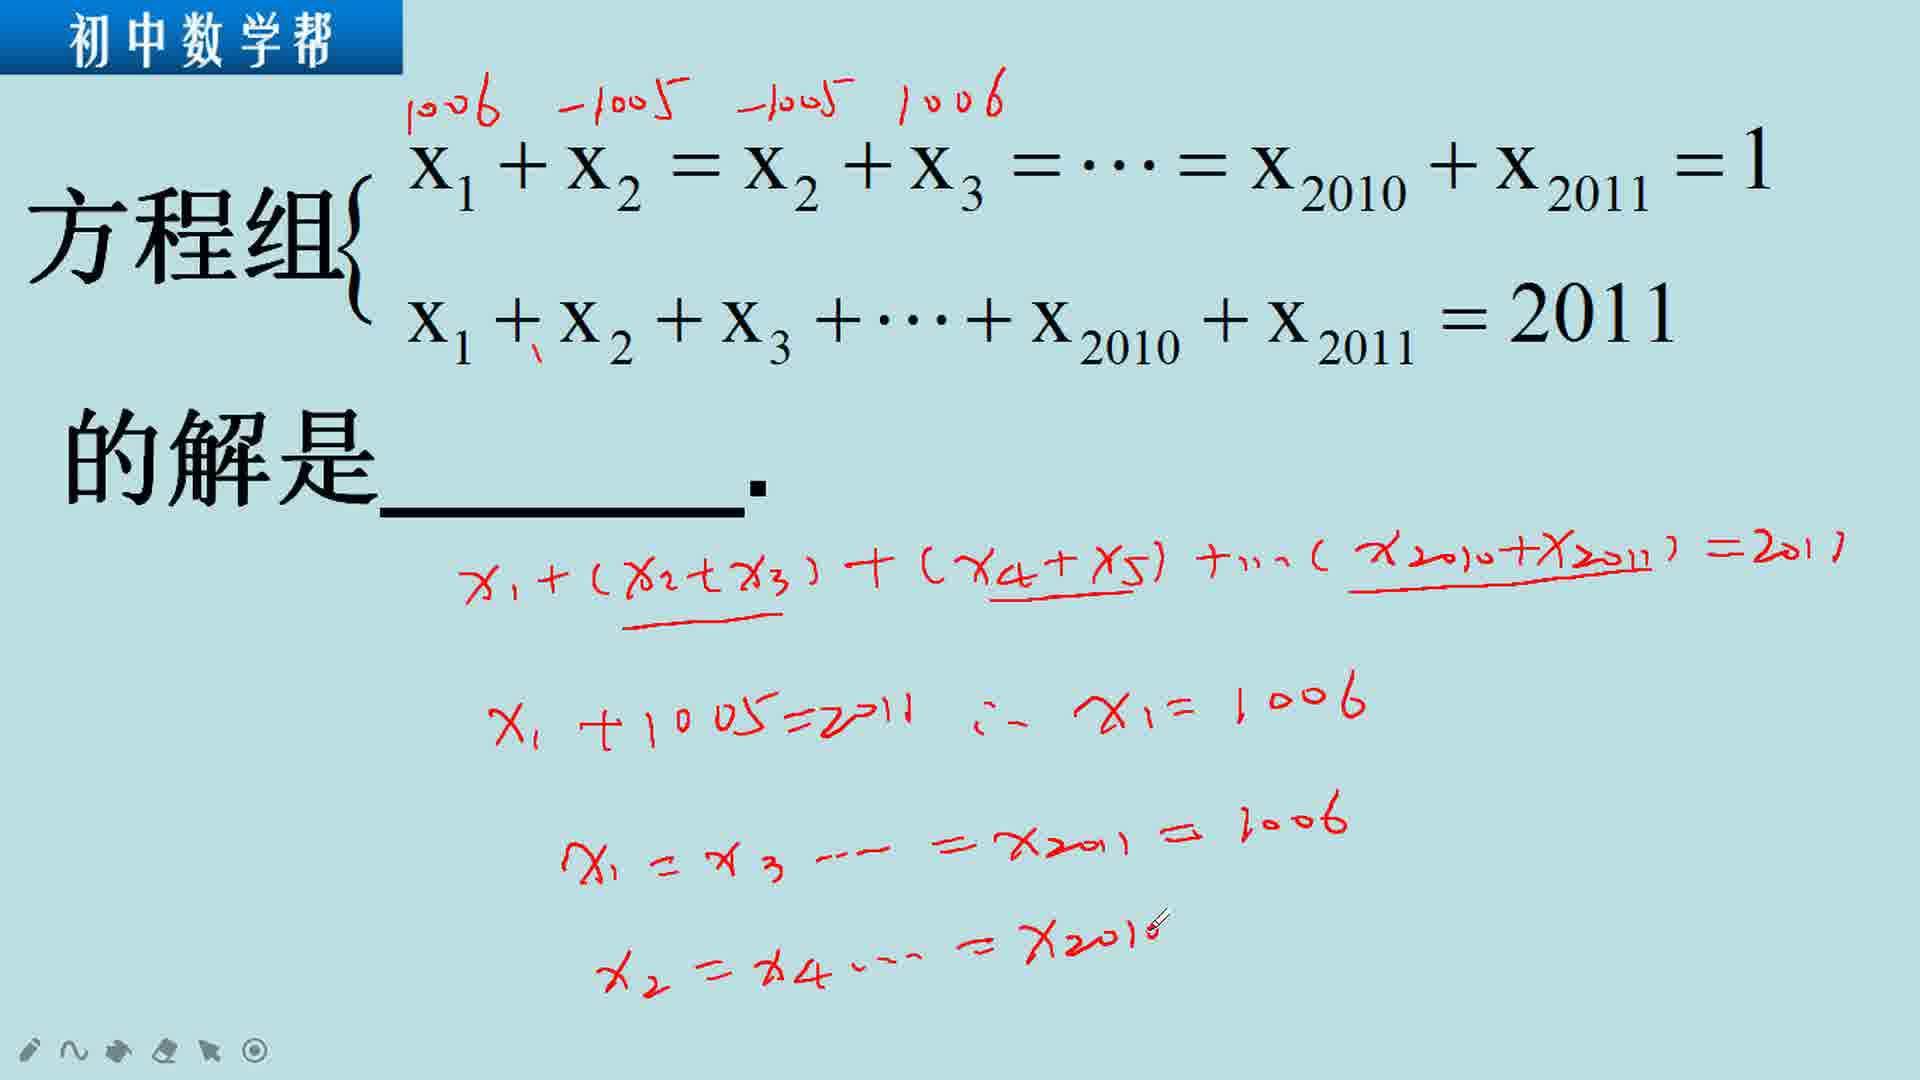 初中数学帮
1006 -1005 -1005 1006
x₁ + x₂ = x₂ + x₃ = ⋯ = x₂₀₁₀ + x₂₀₁₁ = 1
方程组{
x₁ + x₂ + x₃ + ⋯ + x₂₀₁₀ + x₂₀₁₁ = 2011
的解是________.
x₁ + (x₂ + x₃) + (x₄ + x₅) + … (x₂₀₁₀ + x₂₀₁₁) = 2011
x₁ + 1005 = 2011 ∴ x₁ = 1006
x₁ = x₃ … = x₂₀₁₁ = 1006
x₂ = x₄ … = x₂₀₁₀